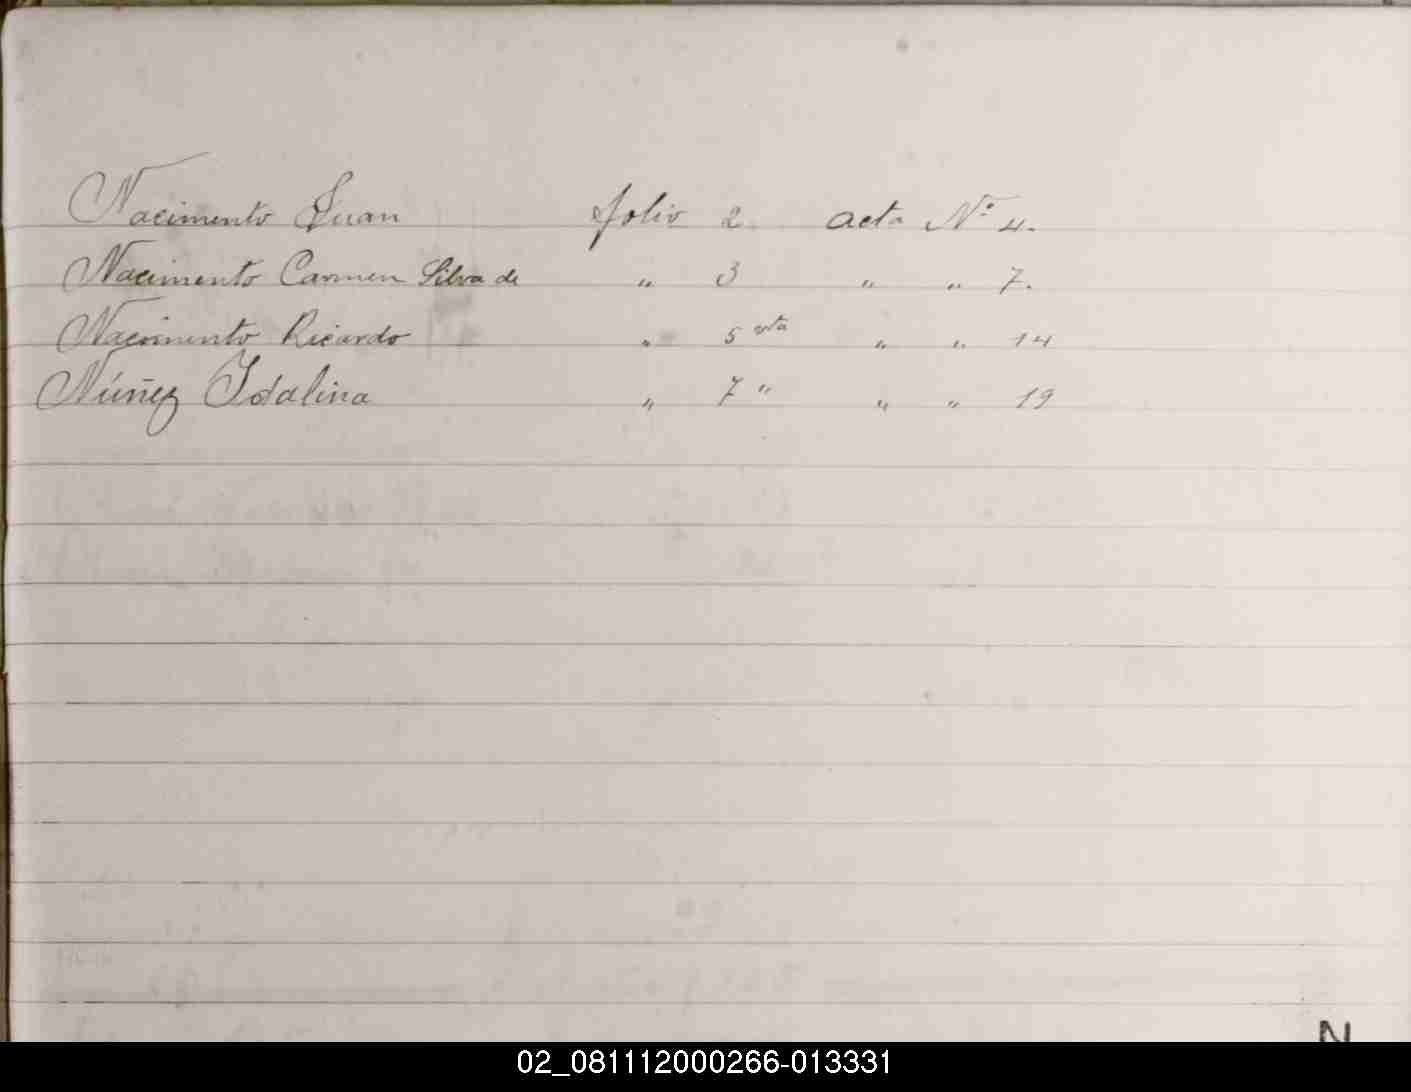 Nacimento Juan folio 2 acta Nº 4.
Nacimento Carmen Silva de " 3 " " 7.
Nacimento Ricardo " 5 vta " " 14
Núñez Idalina " 7 " " " 19
N
02_081112000266-013331